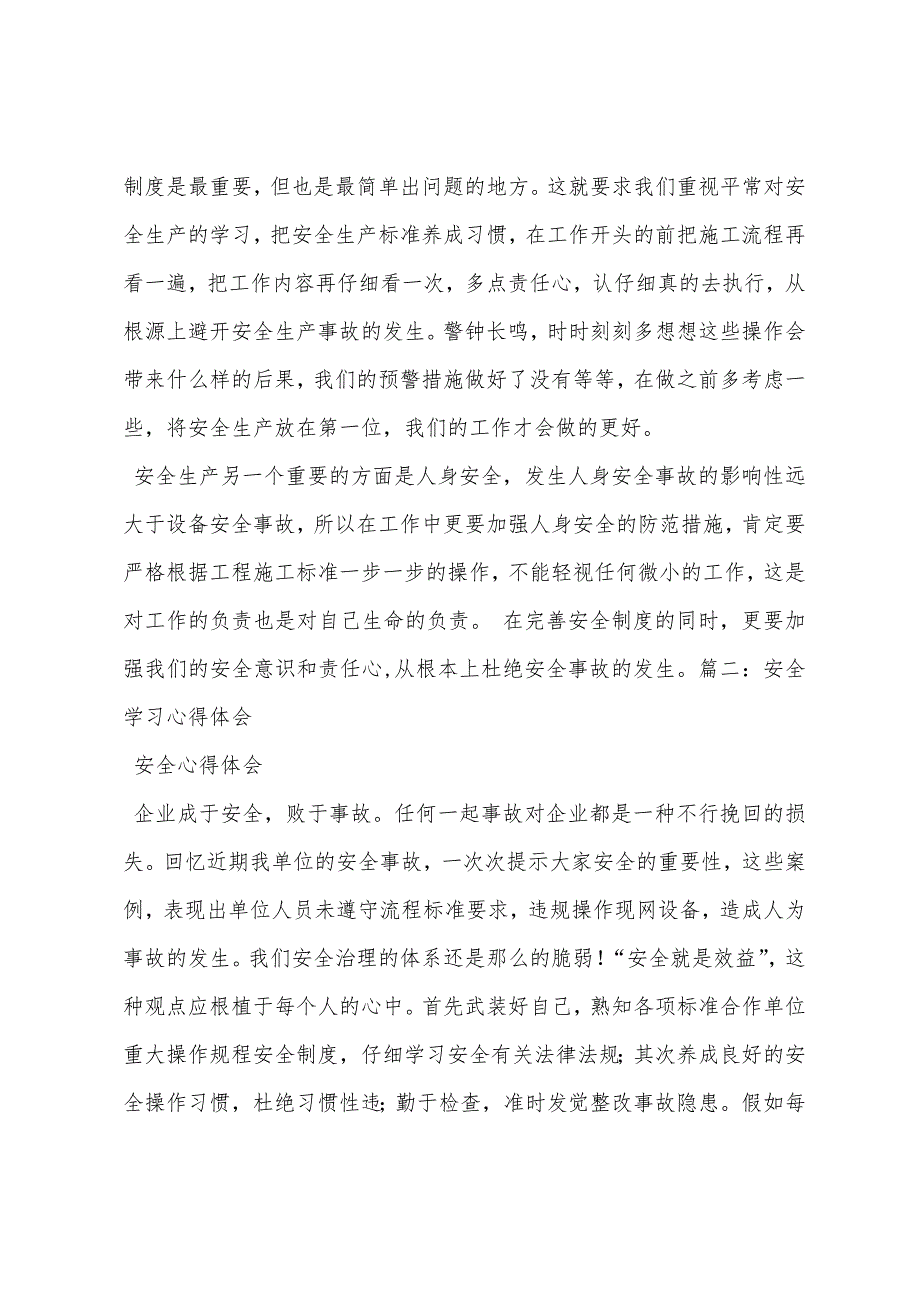 制度是最重要，但也是最简单出问题的地方。这就要求我们重视平常对安
全生产的学习，把安全生产标准养成习惯，在工作开头的前把施工流程再
看一遍，把工作内容再仔细看一次，多点责任心，认仔细真的去执行，从
根源上避开安全生产事故的发生。警钟长鸣，时时刻刻多想想这些操作会
带来什么样的后果，我们的预警措施做好了没有等等，在做之前多考虑一
些，将安全生产放在第一位，我们的工作才会做的更好。
安全生产另一个重要的方面是人身安全，发生人身安全事故的影响性远
大于设备安全事故，所以在工作中更要加强人身安全的防范措施，肯定要
严格根据工程施工标准一步一步的操作，不能轻视任何微小的工作，这是
对工作的负责也是对自己生命的负责。 在完善安全制度的同时，更要加
强我们的安全意识和责任心,从根本上杜绝安全事故的发生。篇二：安全
学习心得体会
安全心得体会
企业成于安全，败于事故。任何一起事故对企业都是一种不行挽回的损
失。回忆近期我单位的安全事故，一次次提示大家安全的重要性，这些案
例，表现出单位人员未遵守流程标准要求，违规操作现网设备，造成人为
事故的发生。我们安全治理的体系还是那么的脆弱！“安全就是效益”，这
种观点应根植于每个人的心中。首先武装好自己，熟知各项标准合作单位
重大操作规程安全制度，仔细学习安全有关法律法规；其次养成良好的安
全操作习惯，杜绝习惯性违；勤于检查，准时发觉整改事故隐患。假如每